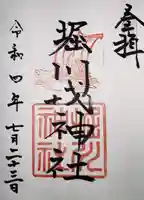 奉拝
堀川戎神社
令和四年七月二十三日